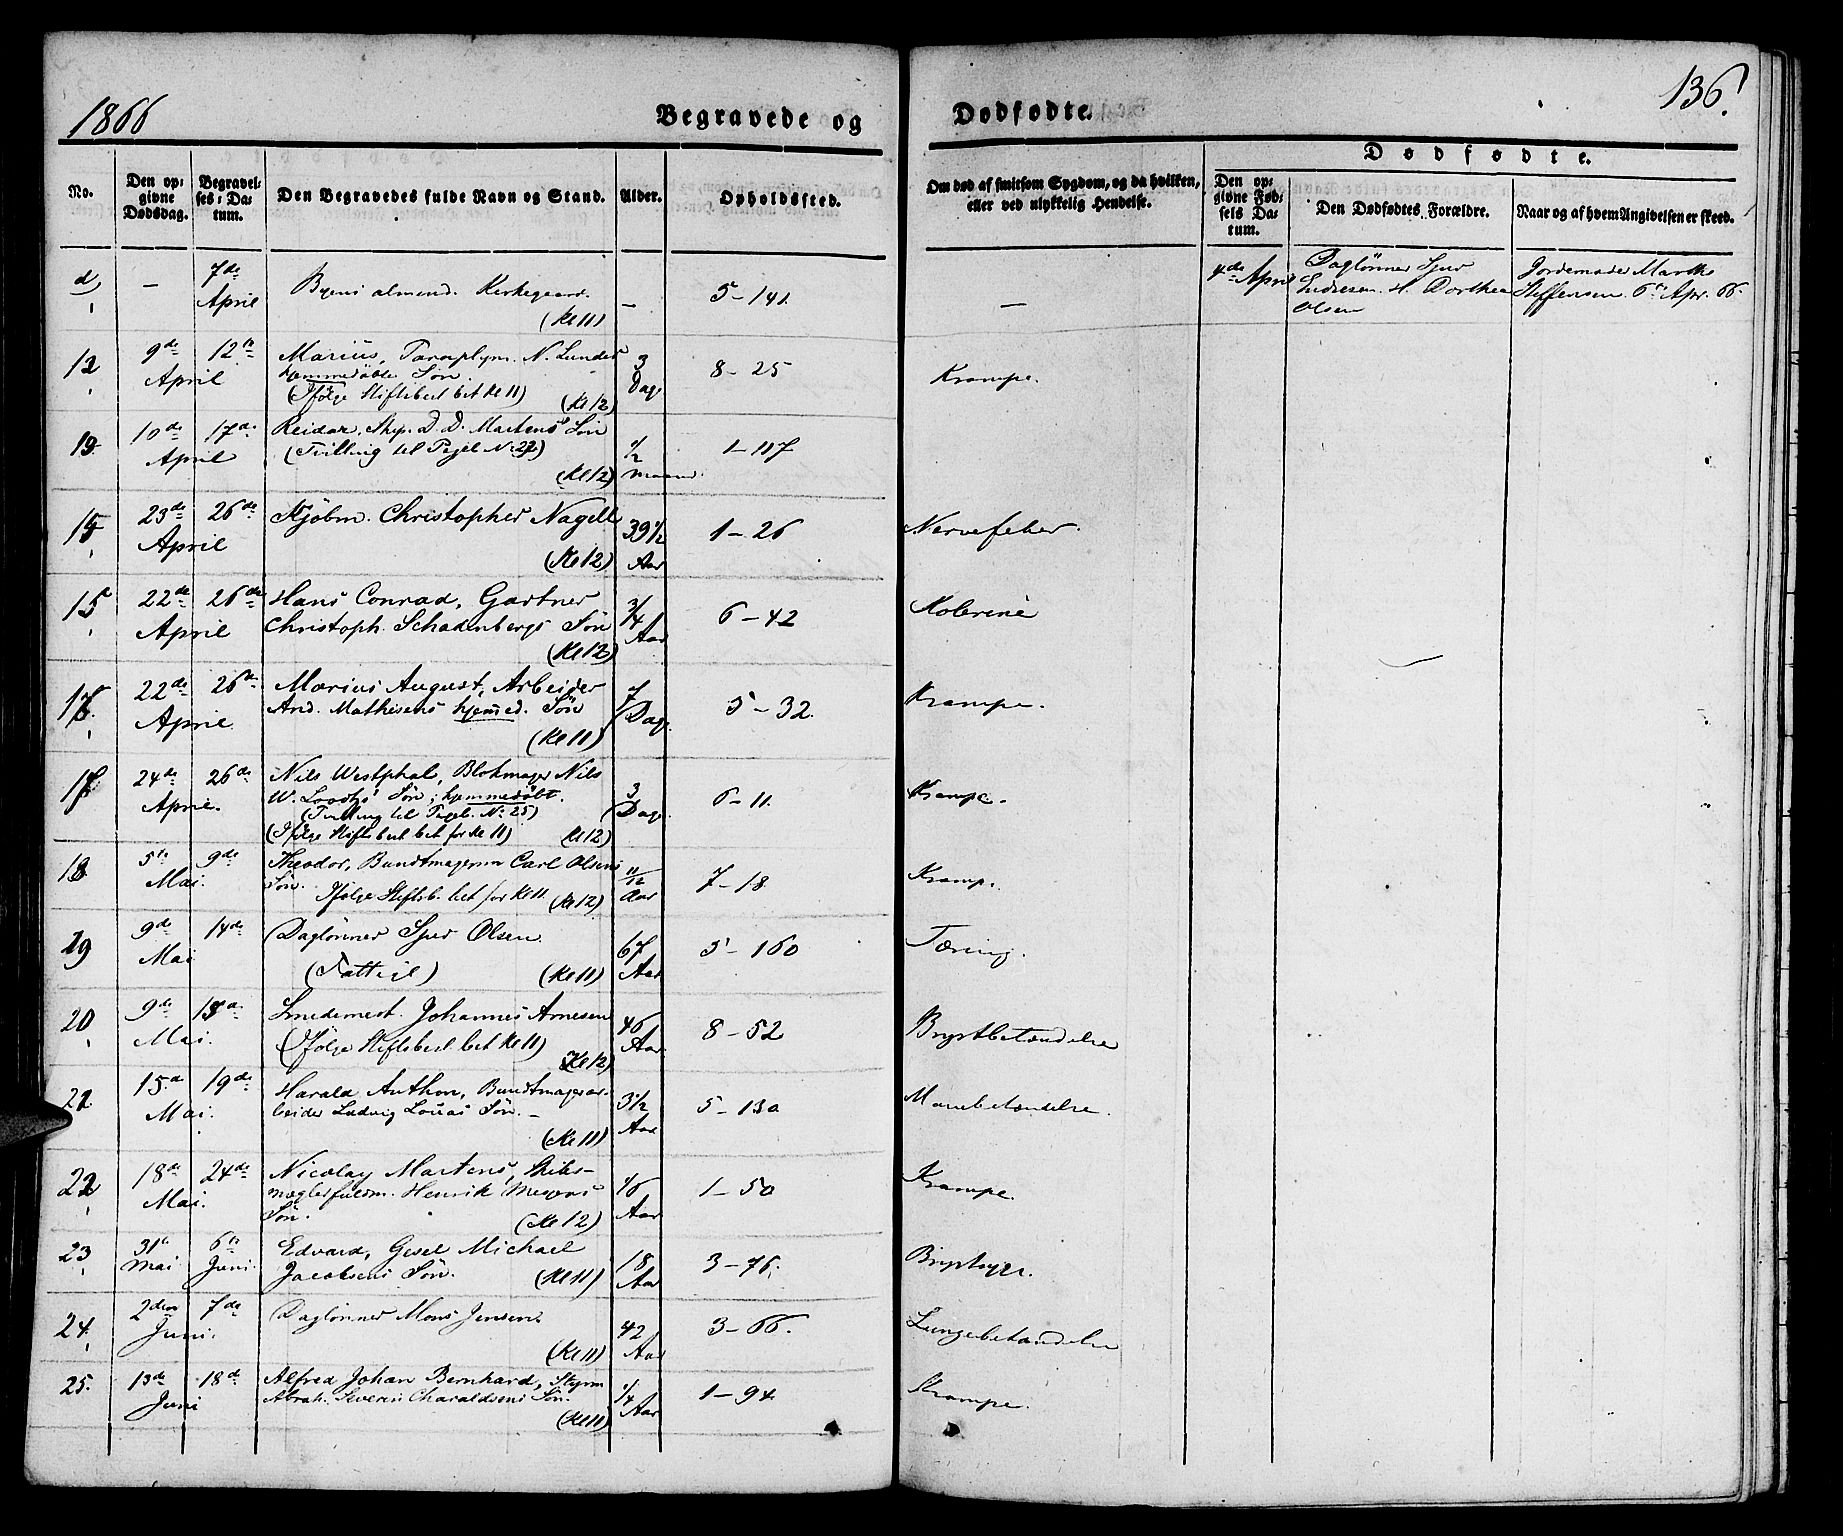 1866
Begravede og
Dødfødte.
136.
No.
Den op-
givne
Dødsdag.
Begravel-
ses-Da-
tum.
Den Begravedes fulde Navn og Stand.
Alder.
Opholdssted.
Om død af smitsom Sygdom, og da hvilken,
eller ved ulykkelig Hendelse.
Dødfødte.
Den op-
givne Fød-
sels Da-
tum.
Den Dødfødtes Forældre.
Naar og af hvem Angivelsen er skeed.
d
–
7de
April
Byens almend. Kirkegaard.
(Kl 11)
–
5–141.
–
4de April
DagLønner Sjur
H. Dorthea
Olsen
Jordemoder Marthe
Steffensen. 6te Apr. 66.
12
9de
April
12te
Marius, Paraplym. N. Lunder
hjemmedøbte Søn.
(Ifølge Stiftsbest. bet Kl 11)
(Kl 12)
3
Dage
8–25
Krampe.
10de
April
17de
Reidar, Skp. D. D. Martens' Søn
(Tvilling til Pagel. No 22)
(Kl 12)
1/2
Maaned
1–117
23de
April
26de
Kjøbm. Christopher Nagell
(Kl 12)
39 1/2
Aar
1–26
Nervefeber.
15
22de
April
26de
Hans Conrad, Gartner
Christoph. Schadenbergs Søn
(Kl 12)
3/4
Aar
6–42
Kolerine
22de
April
26de
Marius August, Arbeider
And. Mathisens hjemmed. Søn
(Kl 11)
7
Dage
5–32.
Krampe.
17
24de
April.
26de
Nils Westphal, Blokmager Nils
W. Søn; hjemmedøbt.
(Tvilling til Pigeb. No 25)
(Ifølge Stiftsbest bet for Kl 11)
(Kl 12)
3
Dage
6–11.
Krampe.
18
5te
Mai.
9de
Theodor, Bundtmagersv. Carl Olsens
Søn.
Ifølge Stiftsb. bet for Kl 11.
(Kl 12)
11/12
Aar
7–18
Krampe.
19
9de
Mai
14de
Daglønner Sjur Olsen.
(Fattigl)
(Kl 11)
67
Aar
5–160
Tæring.
20
9de
Mai.
Smedemest. Johannes Arnesen
(Ifølge Stiftsbest. bet Kl 11)
(Kl 12)
46
Aar.
8–52
Brystbetændelse
21
15de
Mai.
19de
Harald Anthon, Bundtmagerar-
beider Ludvig Søn.–
(Kl 11)
3 1/2
Aar
5–130
Mavebetændelse.
22
18de
Mai.
24de
Nicolay Martens, Skibs-
mæglerfuldm. Henrik Meyers
Søn.
(Kl 12)
Aar
1–50
Krampe.
23
31te
Mai
6te
Juni.
Edvard, Gesel Michael
Jacobsens Søn.
(Kl 11)
18
Aar
3–76.
Brystsyge.
24.
2den
Juni.
7de
Daglønner Mons Jensen.
(Kl 11)
42
Aar
3–66.
Lungebetændelse
25.
13de
Juni
18de
Alfred Johan Bernhard, Styrm
Abrah. Severin Charaldsens Søn.
(Kl 11)
1/4
Aar
1–94.
Krampe.